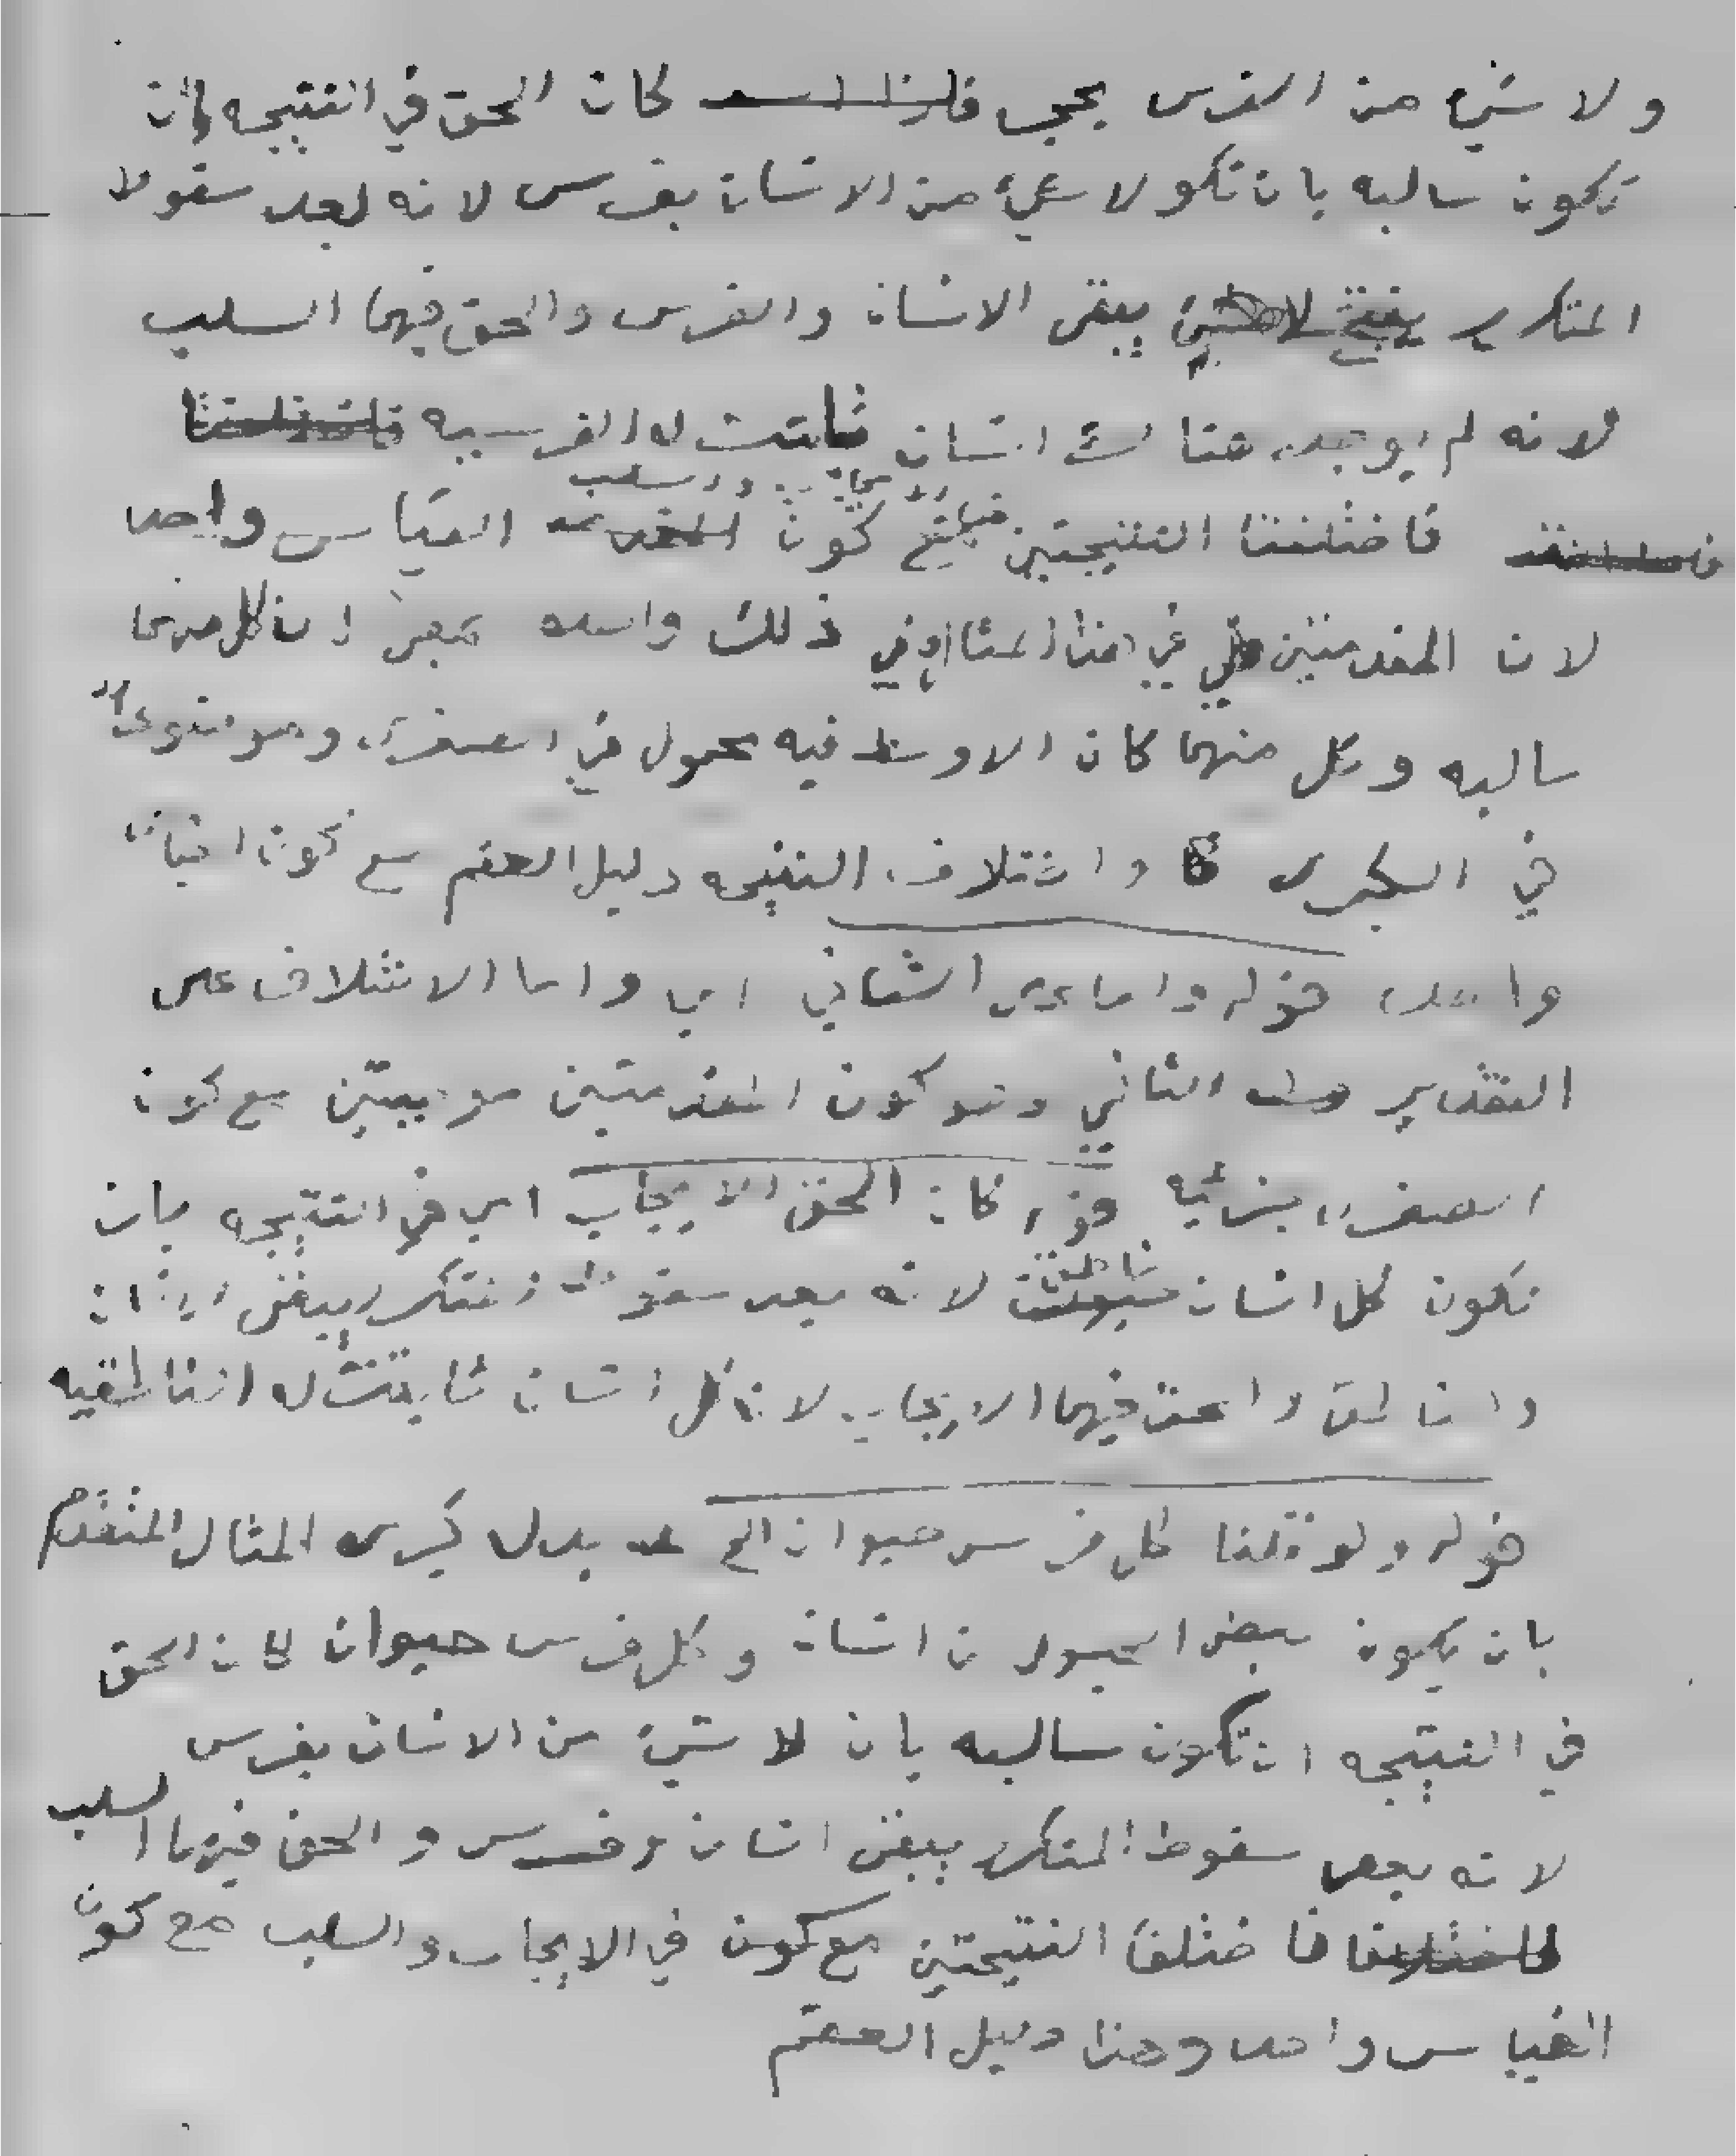 ولا شيء من الفرس بحجر كان الحق في النتيجه بان
تكون سالبه بان تكو لا شيء من الانسان بفرس لانه بعد سقوط
المتكرر يبقى الانسان والفرس والحق فيهما السلب
لانه لم يوجد هناك انسان ثابتت له الفرسيه
فاختلفتا النتيجتين في الايجاب والسلب مع كون القياس واحد
لان المقدمتين في هذا المثال وفي ذلك واحده بمعنى ان كل منهما
سالبه وكل منهما كان الاوسط فيه محمول في الصغرى وموضوعا
في الكبرى واختلاف النتيجه دليل العقم مع كون القياس
واحد، قوله واما على الثاني اي واما الاختلاف على
التقدير الثاني وهو كون المقدمتين موجبتين مع كون
الصغرى جزئيه قوله كان الحق الايجاب اي في النتيجه بان
تكون كل انسان ناطق لانه بعد سقوط المتكرر يبقى انسان
وناطق والحق فيهما الايجاب لان كل انسان ثابتت له الناطقيه
قوله ولو قلنا كل فرس حيوان الخ بدل كبرى المثال المتقدم
بان يكون بعض الحيوان انسان وكل فرس حيوان كان الحق
في النتيجه ان تكون سالبه بان لا شيء من الانسان بفرس
لانه بعد سقوط المتكرر يبقى انسان وفرس والحق فيهما السلب
فاختلفا النتيجتين مع كون في الايجاب والسلب مع كون
القياس واحد وهذا دليل العقم